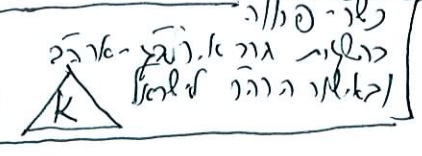 כשר - פרווה
בהשגחת הרב א. רובין - ארה"ב
ובאישור הרה"ר לישראל
K